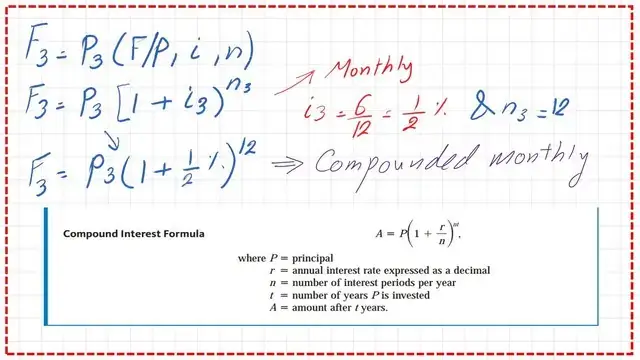 F₃ = P₃ (F/P, i, n)
F₃ = P₃ [1 + i₃)^n₃
Monthly
i₃ = 6/12 = 1/2 % & n₃ = 12
F₃ = P₃ (1 + 1/2 %)^12 ⇒ Compounded monthly
Compound Interest Formula A = P(1 + r/n)^nt,
where P = principal
r = annual interest rate expressed as a decimal
n = number of interest periods per year
t = number of years P is invested
A = amount after t years.